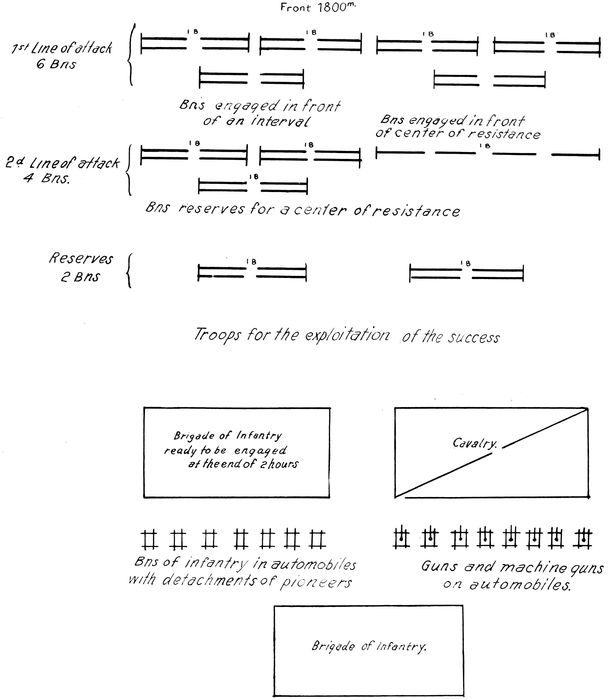 Front 1800m.
1 B
1 B
1 B
1 B
1st Line of attack
6 Bns
Bns engaged in front
of an interval
Bns engaged in front
of center of resistance
1 B
1 B
1 B
2d Line of attack
4 Bns.
1 B
Bns reserves for a center of resistance
Reserves
2 Bns
1 B
1 B
Troops for the exploitation of the success
Brigade of Infantry
ready to be engaged
at the end of 2 hours
Cavalry.
Bns of infantry in automobiles
with detachments of pioneers
Guns and machine guns
on automobiles.
Brigade of Infantry.